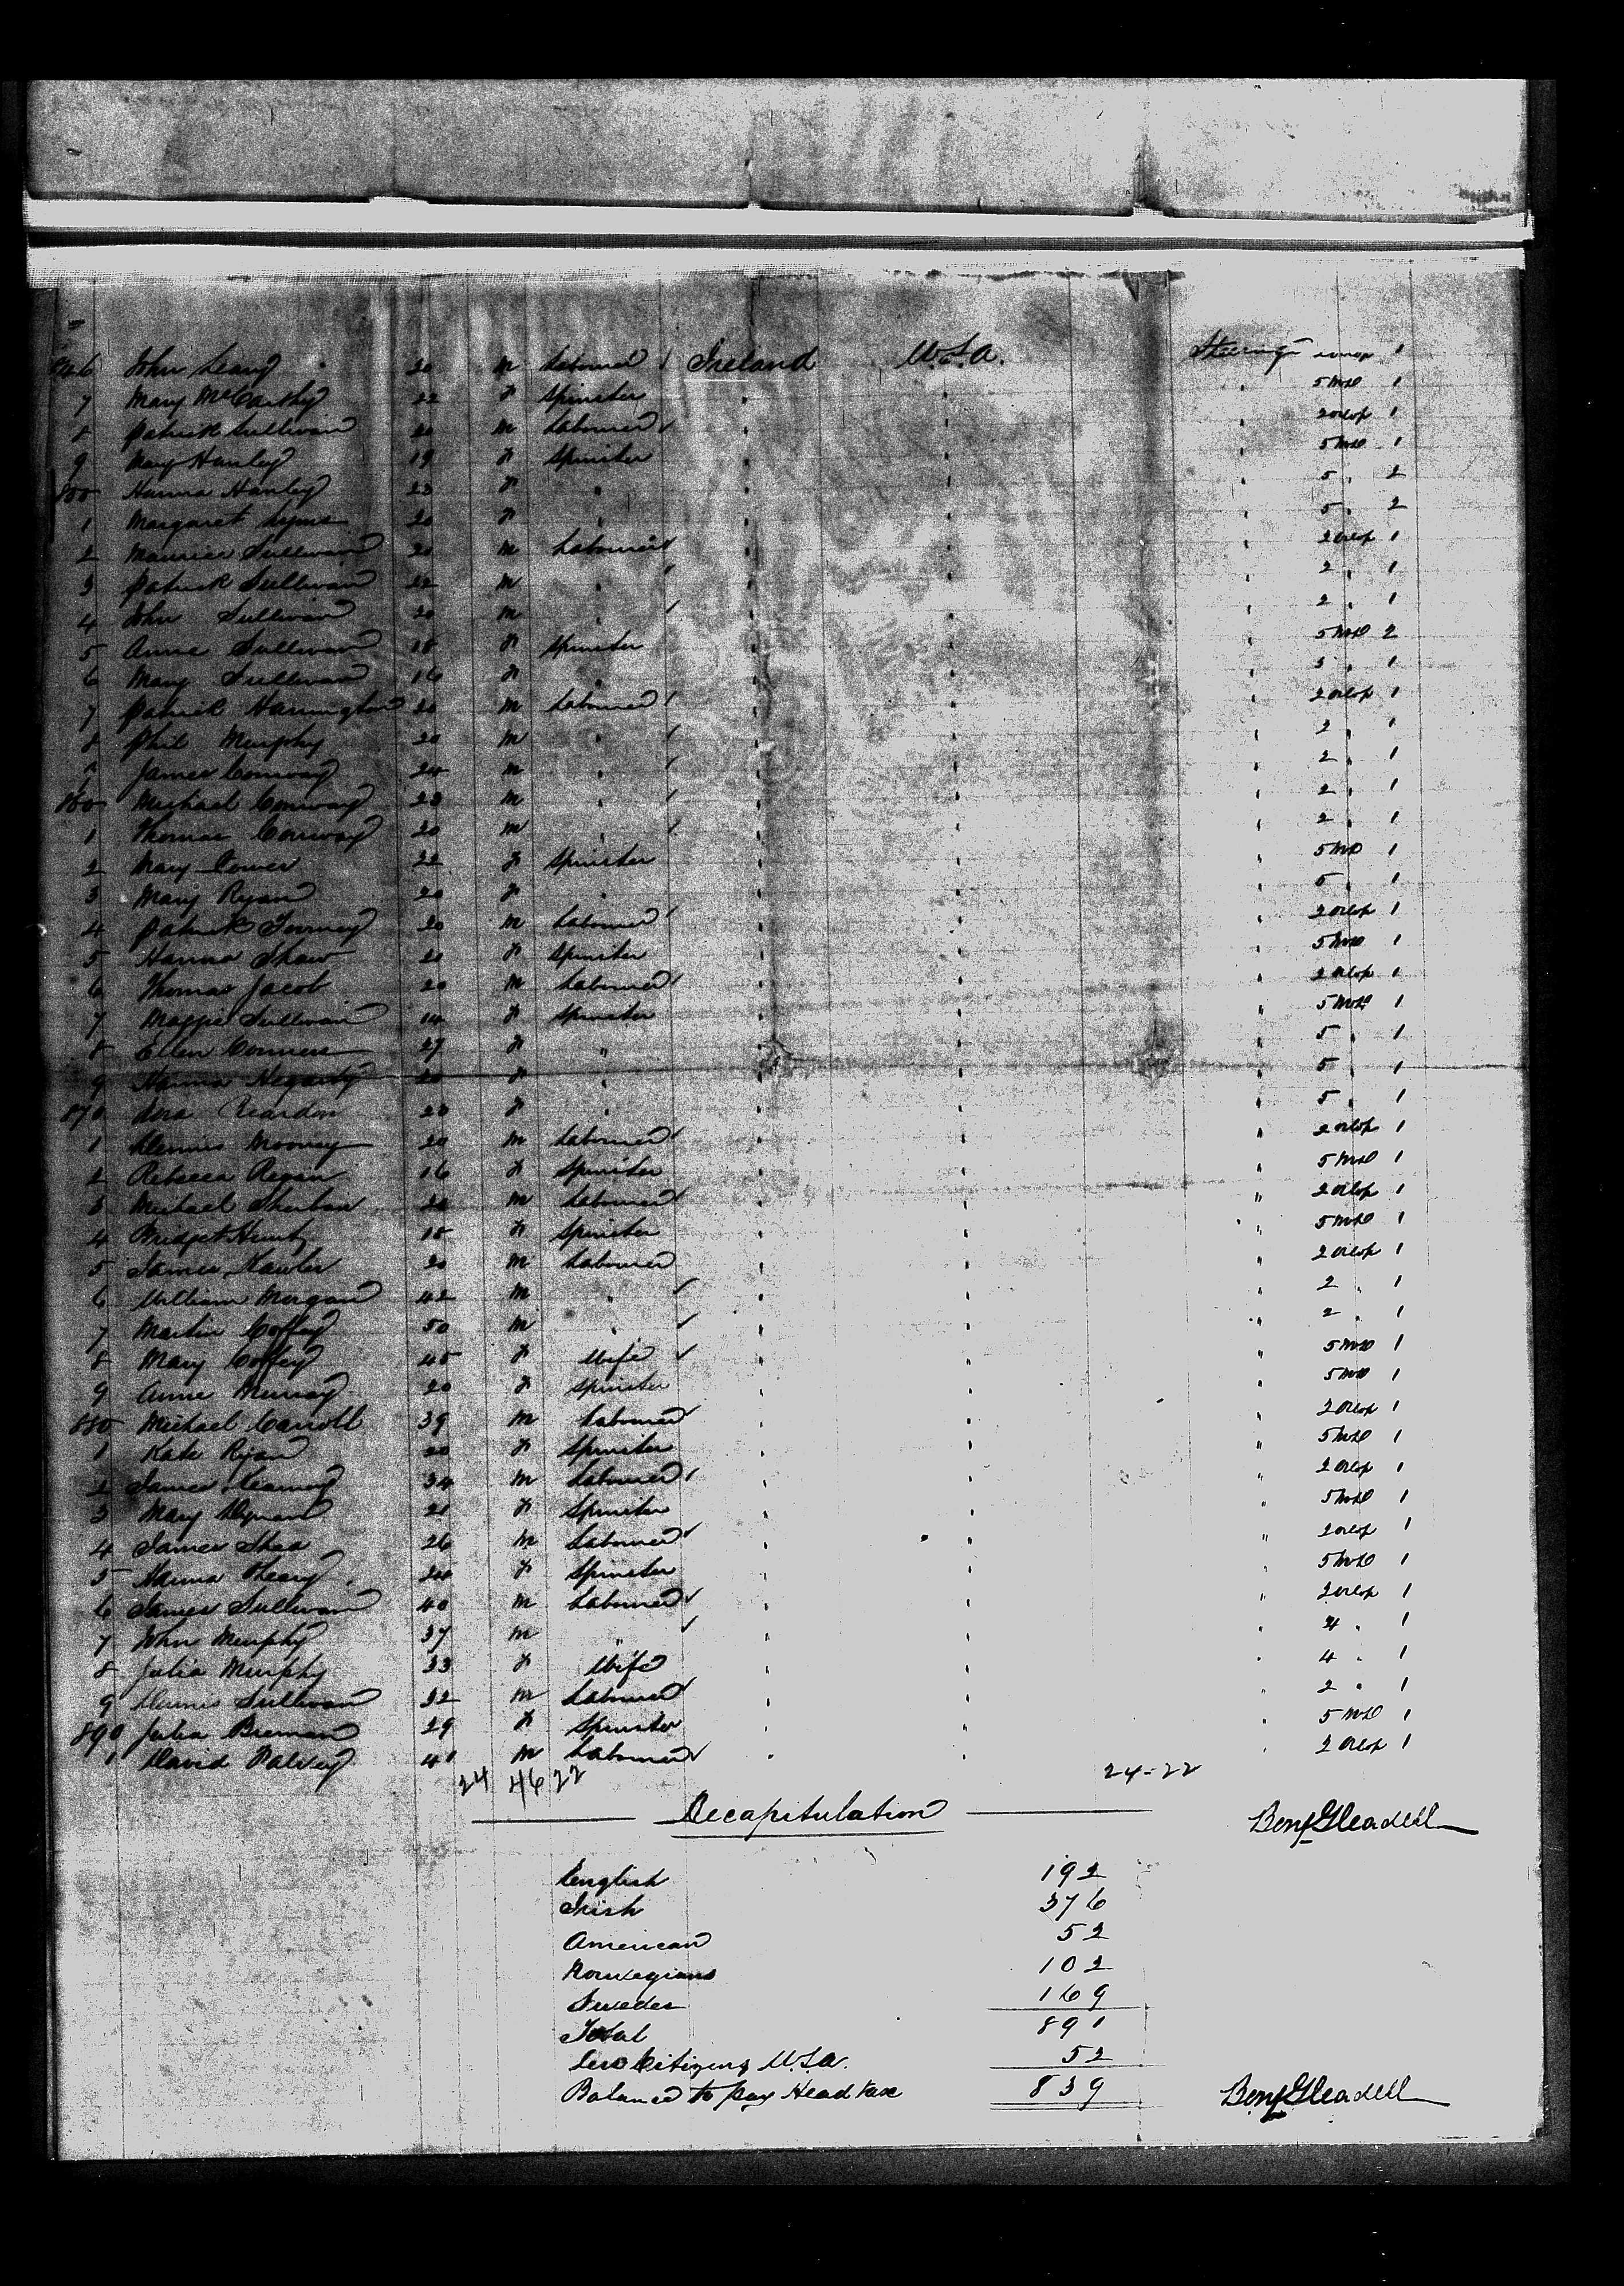 846 John Leary 20 m Labourer / Ireland U.S.A. Steerage 2 orlop 1
7 Mary McCarthy 22 f Spinster " " " 5 Mid 1
8 Patrick Sullivan 20 m Labourer " " " 2 orlop 1
9 Mary Hanley 19 f Spinster " " " 5 Mid 1
850 Hanna Hanley 23 f " " " " 5 " 2
1 Margaret Lyons 20 f " " " " 5 " 2
2 Maurice Sullivan 20 m Labourer " " " 2 orlop 1
3 Patrick Sullivan 22 m " " " " 2 " 1
4 John Sullivan 20 m " " " " 2 " 1
5 Anne Sullivan 18 f Spinster " " " 5 Mid 2
6 Mary Sullivan 16 f " " " " 5 " 1
7 Patrick Harrington 20 m Labourer " " " 2 orlop 1
8 Phil Murphy 20 m " " " " 2 " 1
9 James Conway 24 m " " " " 2 " 1
860 Michael Conway 23 m " " " " 2 " 1
1 Thomas Conway 20 m " " " " 2 " 1
2 Mary Power 22 f Spinster " " " 5 Mid 1
3 Mary Ryan 20 f " " " " 5 " 1
4 Patrick 20 m Labourer " " " 2 orlop 1
5 Hanna Shaw 20 f Spinster " " " 5 Mid 1
6 Thomas Jacob 20 m Labourer " " " 2 orlop 1
7 Maggie Sullivan 14 f Spinster " " " 5 Mid 1
8 Ellen Connors 27 f " " " " 5 " 1
9 Hanna Hegarty 20 f " " " " 5 " 1
870 Nora Reardon 20 f " " " " 5 " 1
1 Dennis Mooney 20 m Labourer " " " 2 orlop 1
2 Rebecca Regan 16 f Spinster " " " 5 Mid 1
3 Michael 20 m Labourer " " " 2 orlop 1
4 Bridget Hunt 18 f Spinster " " " 5 Mid 1
5 James Lawler 20 m Labourer " " " 2 orlop 1
6 William Morgan 42 m " " " " 2 " 1
7 Martin Coffey 50 m " " " " 2 " 1
8 Mary Coffey 45 f Wife " " " 5 Mid 1
9 Anne Murray 20 f Spinster " " " 5 Mid 1
880 Michael Carroll 39 m Labourer " " " 2 orlop 1
1 Kate Ryan 20 f Spinster " " " 5 Mid 1
2 James Kearney 34 m Labourer " " " 2 orlop 1
3 Mary 21 f Spinster " " " 5 Mid 1
4 James Shea 26 m Labourer " " " 2 orlop 1
5 Hanna 24 f Spinster " " " 5 Mid 1
6 James Sullivan 40 m Labourer " " " 2 orlop 1
7 John Murphy 37 m " " " " 4 " 1
8 Julia Murphy 33 f Wife " " " 4 " 1
9 Dennis Sullivan 32 m Labourer " " " 2 " 1
890 Julia Brennan 29 f Spinster " " " 5 Mid 1
1 David 41 m Labourer " " " 2 orlop 1
24 46 22 24-22
Recapitulation
Benj Gleadell
English 192
Irish 376
American 52
Norwegians 102
Swedes 169
Total 891
Less Citizens U.S.A. 52
Balance to pay Head tax 839
Benj Gleadell